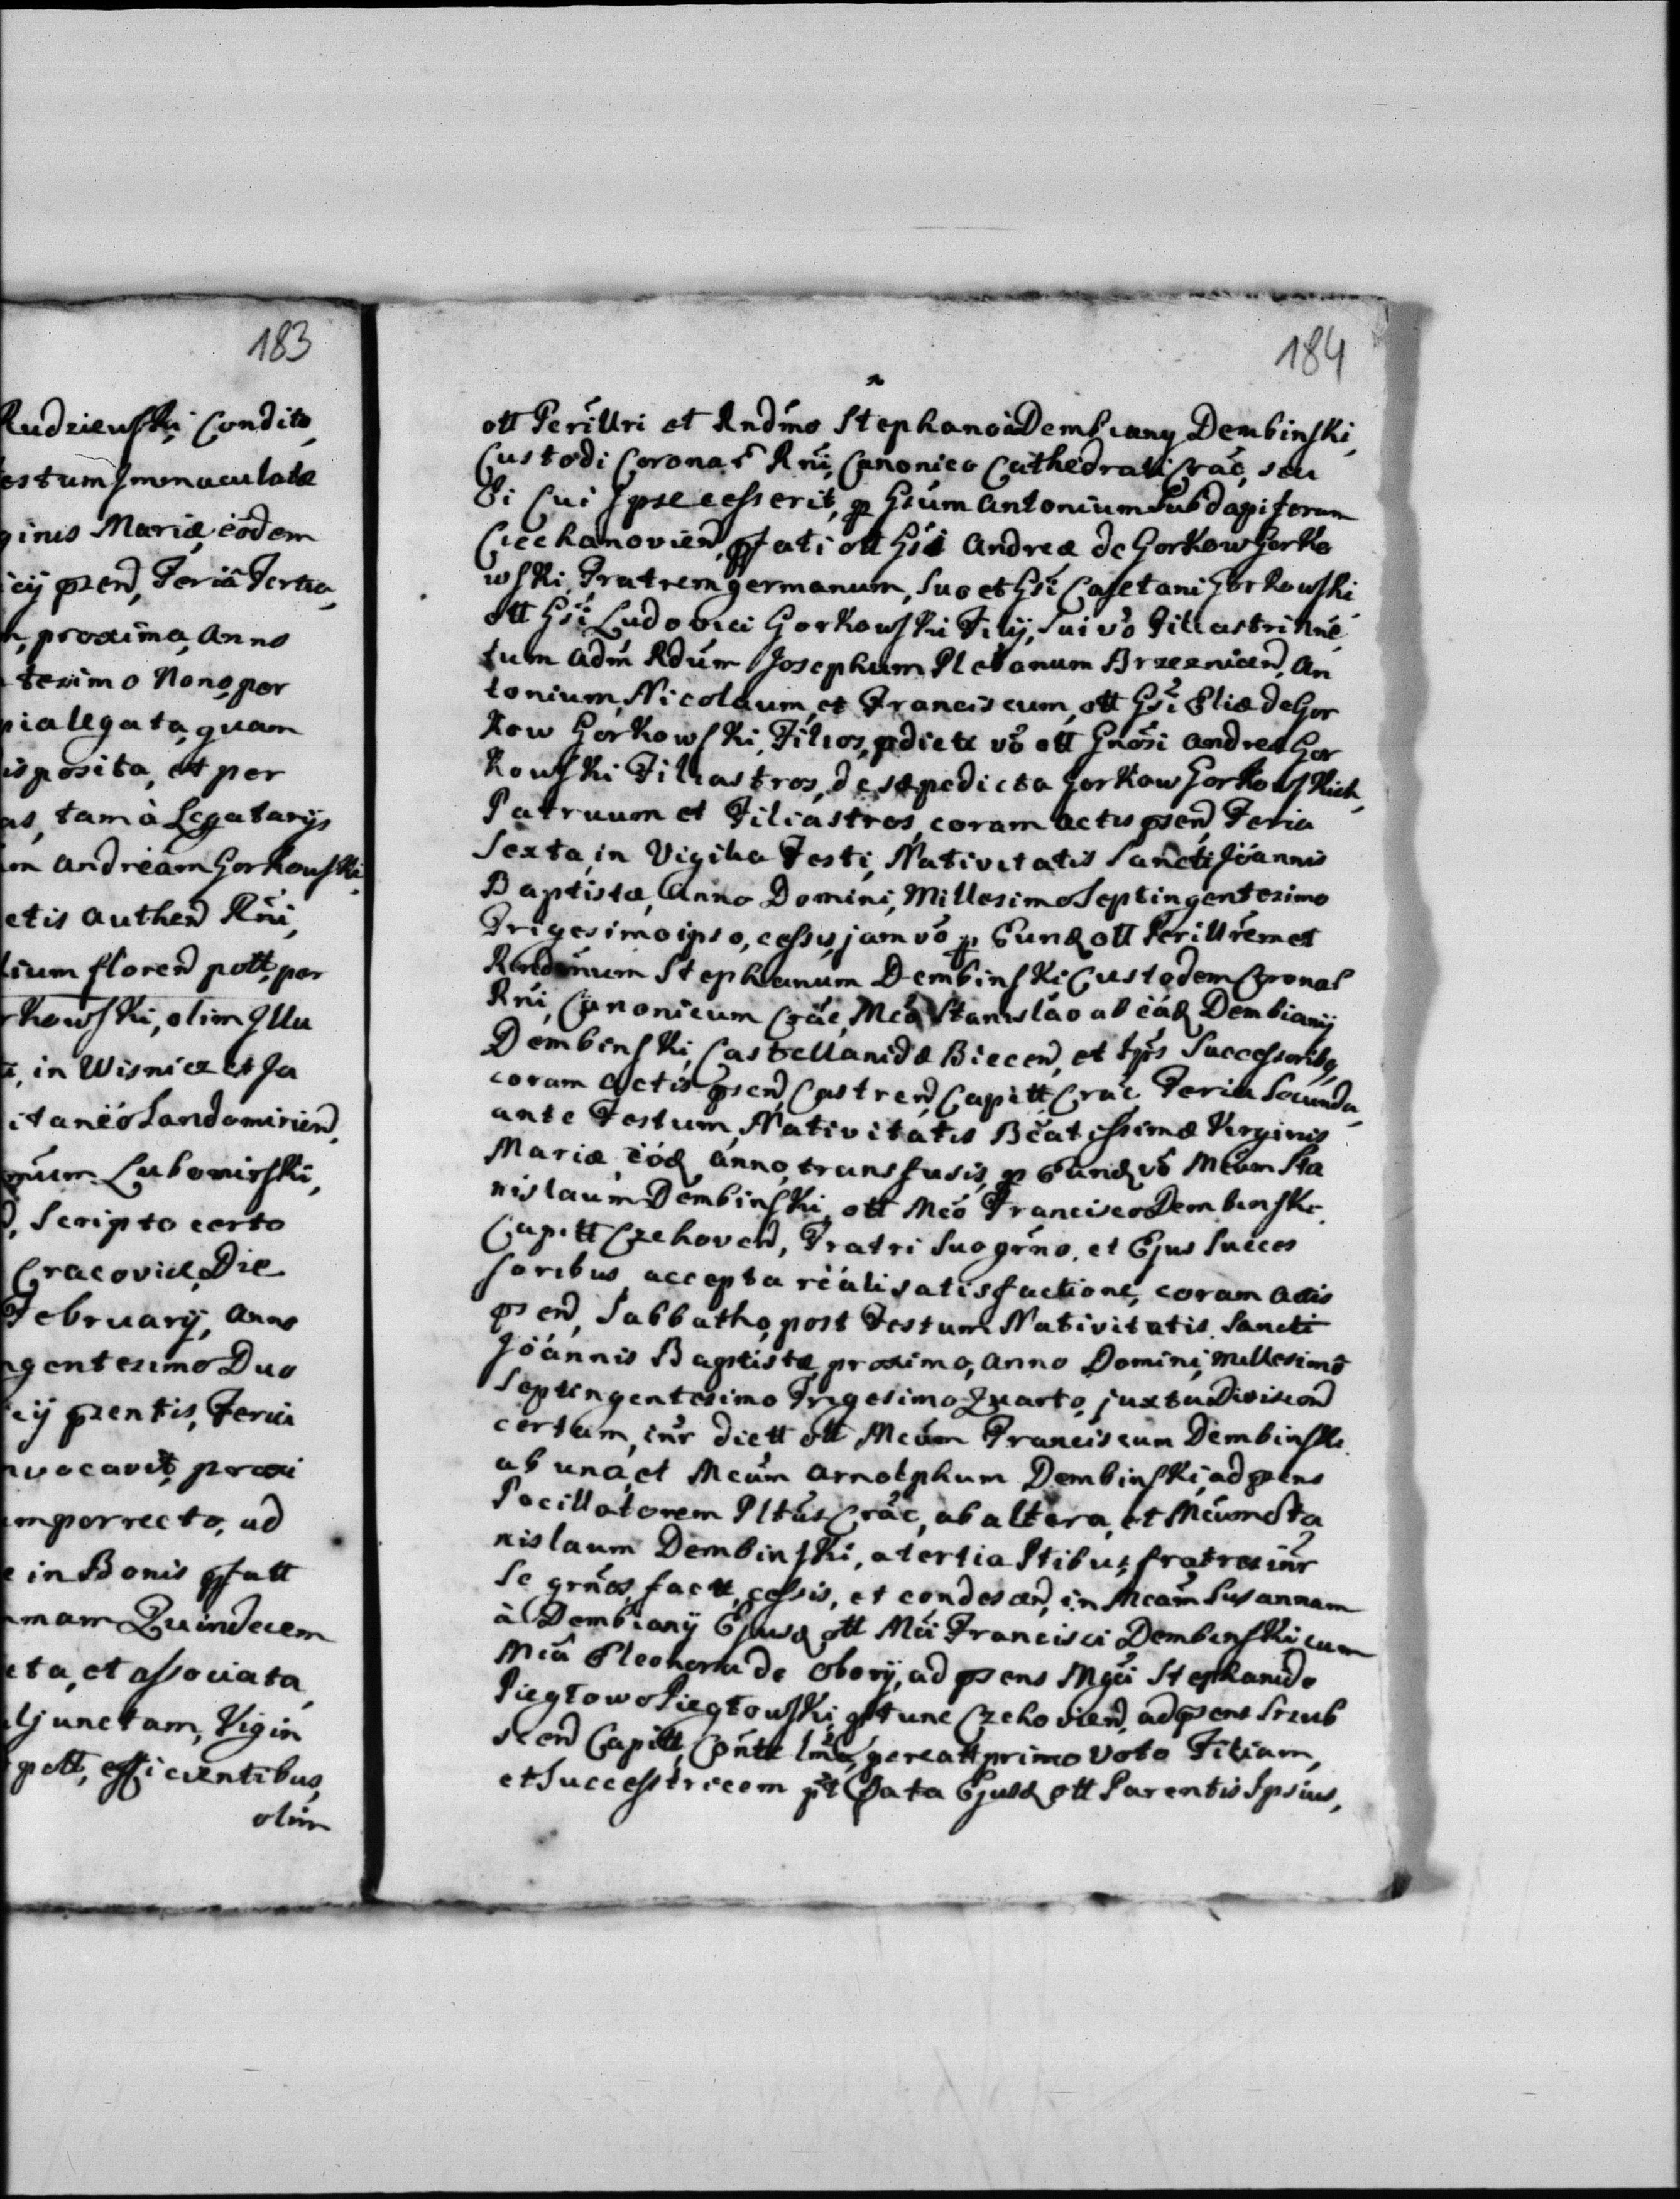 183
Rudziewski Condito,
estum Immaculatæ
ginis Mariæ, eodem
icij pzend, Feria Tertia,
proxima, Anno
tesimo Nono, per
pia legata, quam
isposita, et per
as, tam à Legatarijs
m Andream Gorkowski
etis Authen Rni,
lium floren pott, per
rkowski, olim Illu
in Wisnicz et Ja
itaneo Sandomirien,
Lubomirski,
Scripto certo
Cracoviæ, Die
February, Anno
ngentesimo Duo
ij pzentis, Feria
nvocavit, proxi
mporrecto, ad
e in Bonis pfatt
mam Quindecem
eta, et associata,
ljunctam, Vigin
pott, efficientibus,
olim
184
ott Perillri et Rndmo Stephano à Dembiany Dembinski,
Custodi Coronar Rni, Canonico Cathedrali Crac, seu
Ei Cui Ipse cesserit, p Gsum Antonium Subdapiferum
Ciechanovien, pfati ott Gsi Andreæ de Gorkow Gorko
wski, Fratrem germanum, suo et Gsi Cajetani Gorkowski
ott Gsi Ludovici Gorkowski Filij, sui vo Filiastri nne
tum Adm Rdum Josephum Plebanum Brzeznicen, An
tonium, Nicolaum, et Franciscum, ott Gsi Eliæ de Gor
kow Gorkowski, Filios, pdicti vo ott Gnosi Andreæ Gor
kowski Filiastros, de sæpedicta Gorkow Gorkowskich,
Patruum et Filiastros, coram Actis psen, Feria
Sexta, in Vigilia Festi, Nativitatis Sancti Joannis
Baptistæ, Anno Domini, Millesimo Septingentesimo
Trigesimo ipso, cessis, jam vo p Eund ott Perillrem et
Rndmum Stephanum Dembinski Custodem Coronal
Rni, Canonicum Crac, Mco Stanislao ab ead Dembiany
Dembinski, Castellanidæ Biecen, et Ips Successoribg,
coram Actis psen, Castren, Capitt, Crac Feria Secunda
ante Festum, Nativitatis Beatissimæ Virginis
Mariæ, eod, anno, transfusis, p Eund vo Mcum Sta
nislaum Dembinski, ott Mco Francisco Dembinski
Capitt Czchoven, Fratri suo grno, et Ejus Succes
soribus, accepta reali satisfactione, coram Actis
psen, Sabbatho, post Festum Nativitatis Sancti
Joannis Baptistæ, proximo, Anno Domini, Millesimo
Septingentesimo Trigesimo Quarto, juxta Division
certam, inr dictt ott Mcum Franciscum Dembinski
ab una, et Mcum Arnolphum Dembinski, ad psens
Pocillatorem Pltus Crac, ab altera, et Mcum Sta
nislaum Dembinski, a tertia Ptibus, fratres inr
Se grnos, factt, cessis, et condescen, in Mcam Susannam
à Dembiany Ejusd ott Mci Francisci Dembinski cum
Mca Eleonora de Obory, ad psens Mgci Stephani de
Piegłowo Piegłowski, ptunc Czchovien, ad psens Srzub
scen Capitt, Conte lma, pereatt primo Voto Filiam,
et Successtricem pt Data Ejusd ott Parentis Ipsius,